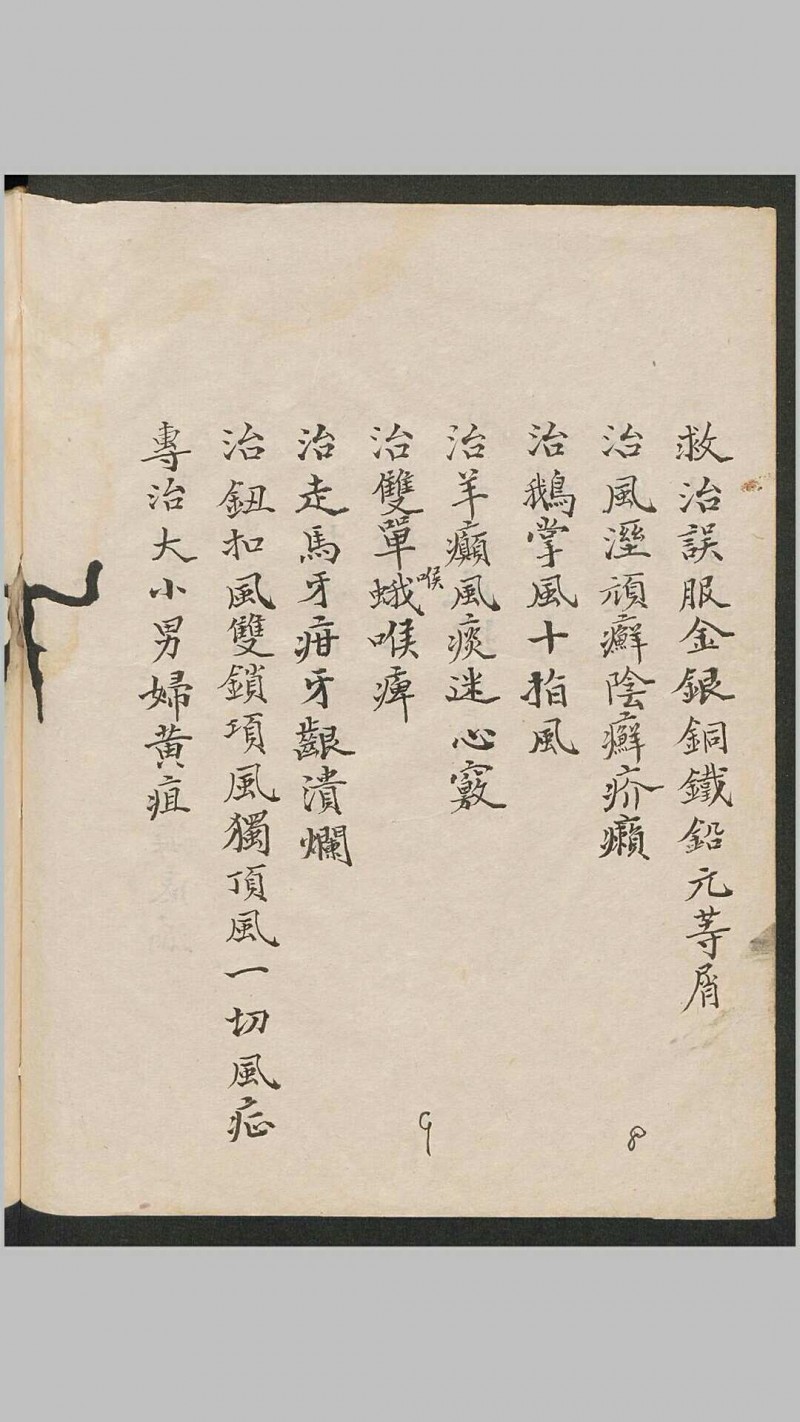 救治誤服金銀銅鐵鉛元等屑
治風溼頑癬陰癬疥癩
8
治鵝掌風十指風
治羊癲風痰迷心竅
喉
治雙單蛾喉痺
9
治走馬牙疳牙齦潰爛
治鈕扣風雙鎖項風獨頂風一切風症
專治大小男婦黃疸